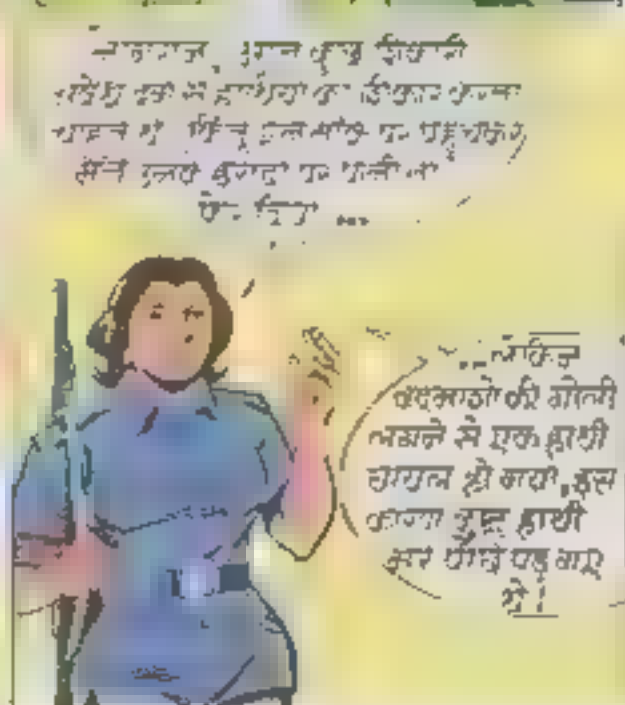 नागराज, कुछ शिकारी
से हाथियों का शिकार करना
चाहते थे किन्तु पर पहुंचकर
मैंने इनके इरादों पर पानी
फेर दिया ...
...लेकिन
बदमाशों की गोली
लगने से एक हाथी
घायल हो गया, इस
कारण कुछ हाथी
मेरे पीछे पड़ गए
थे!